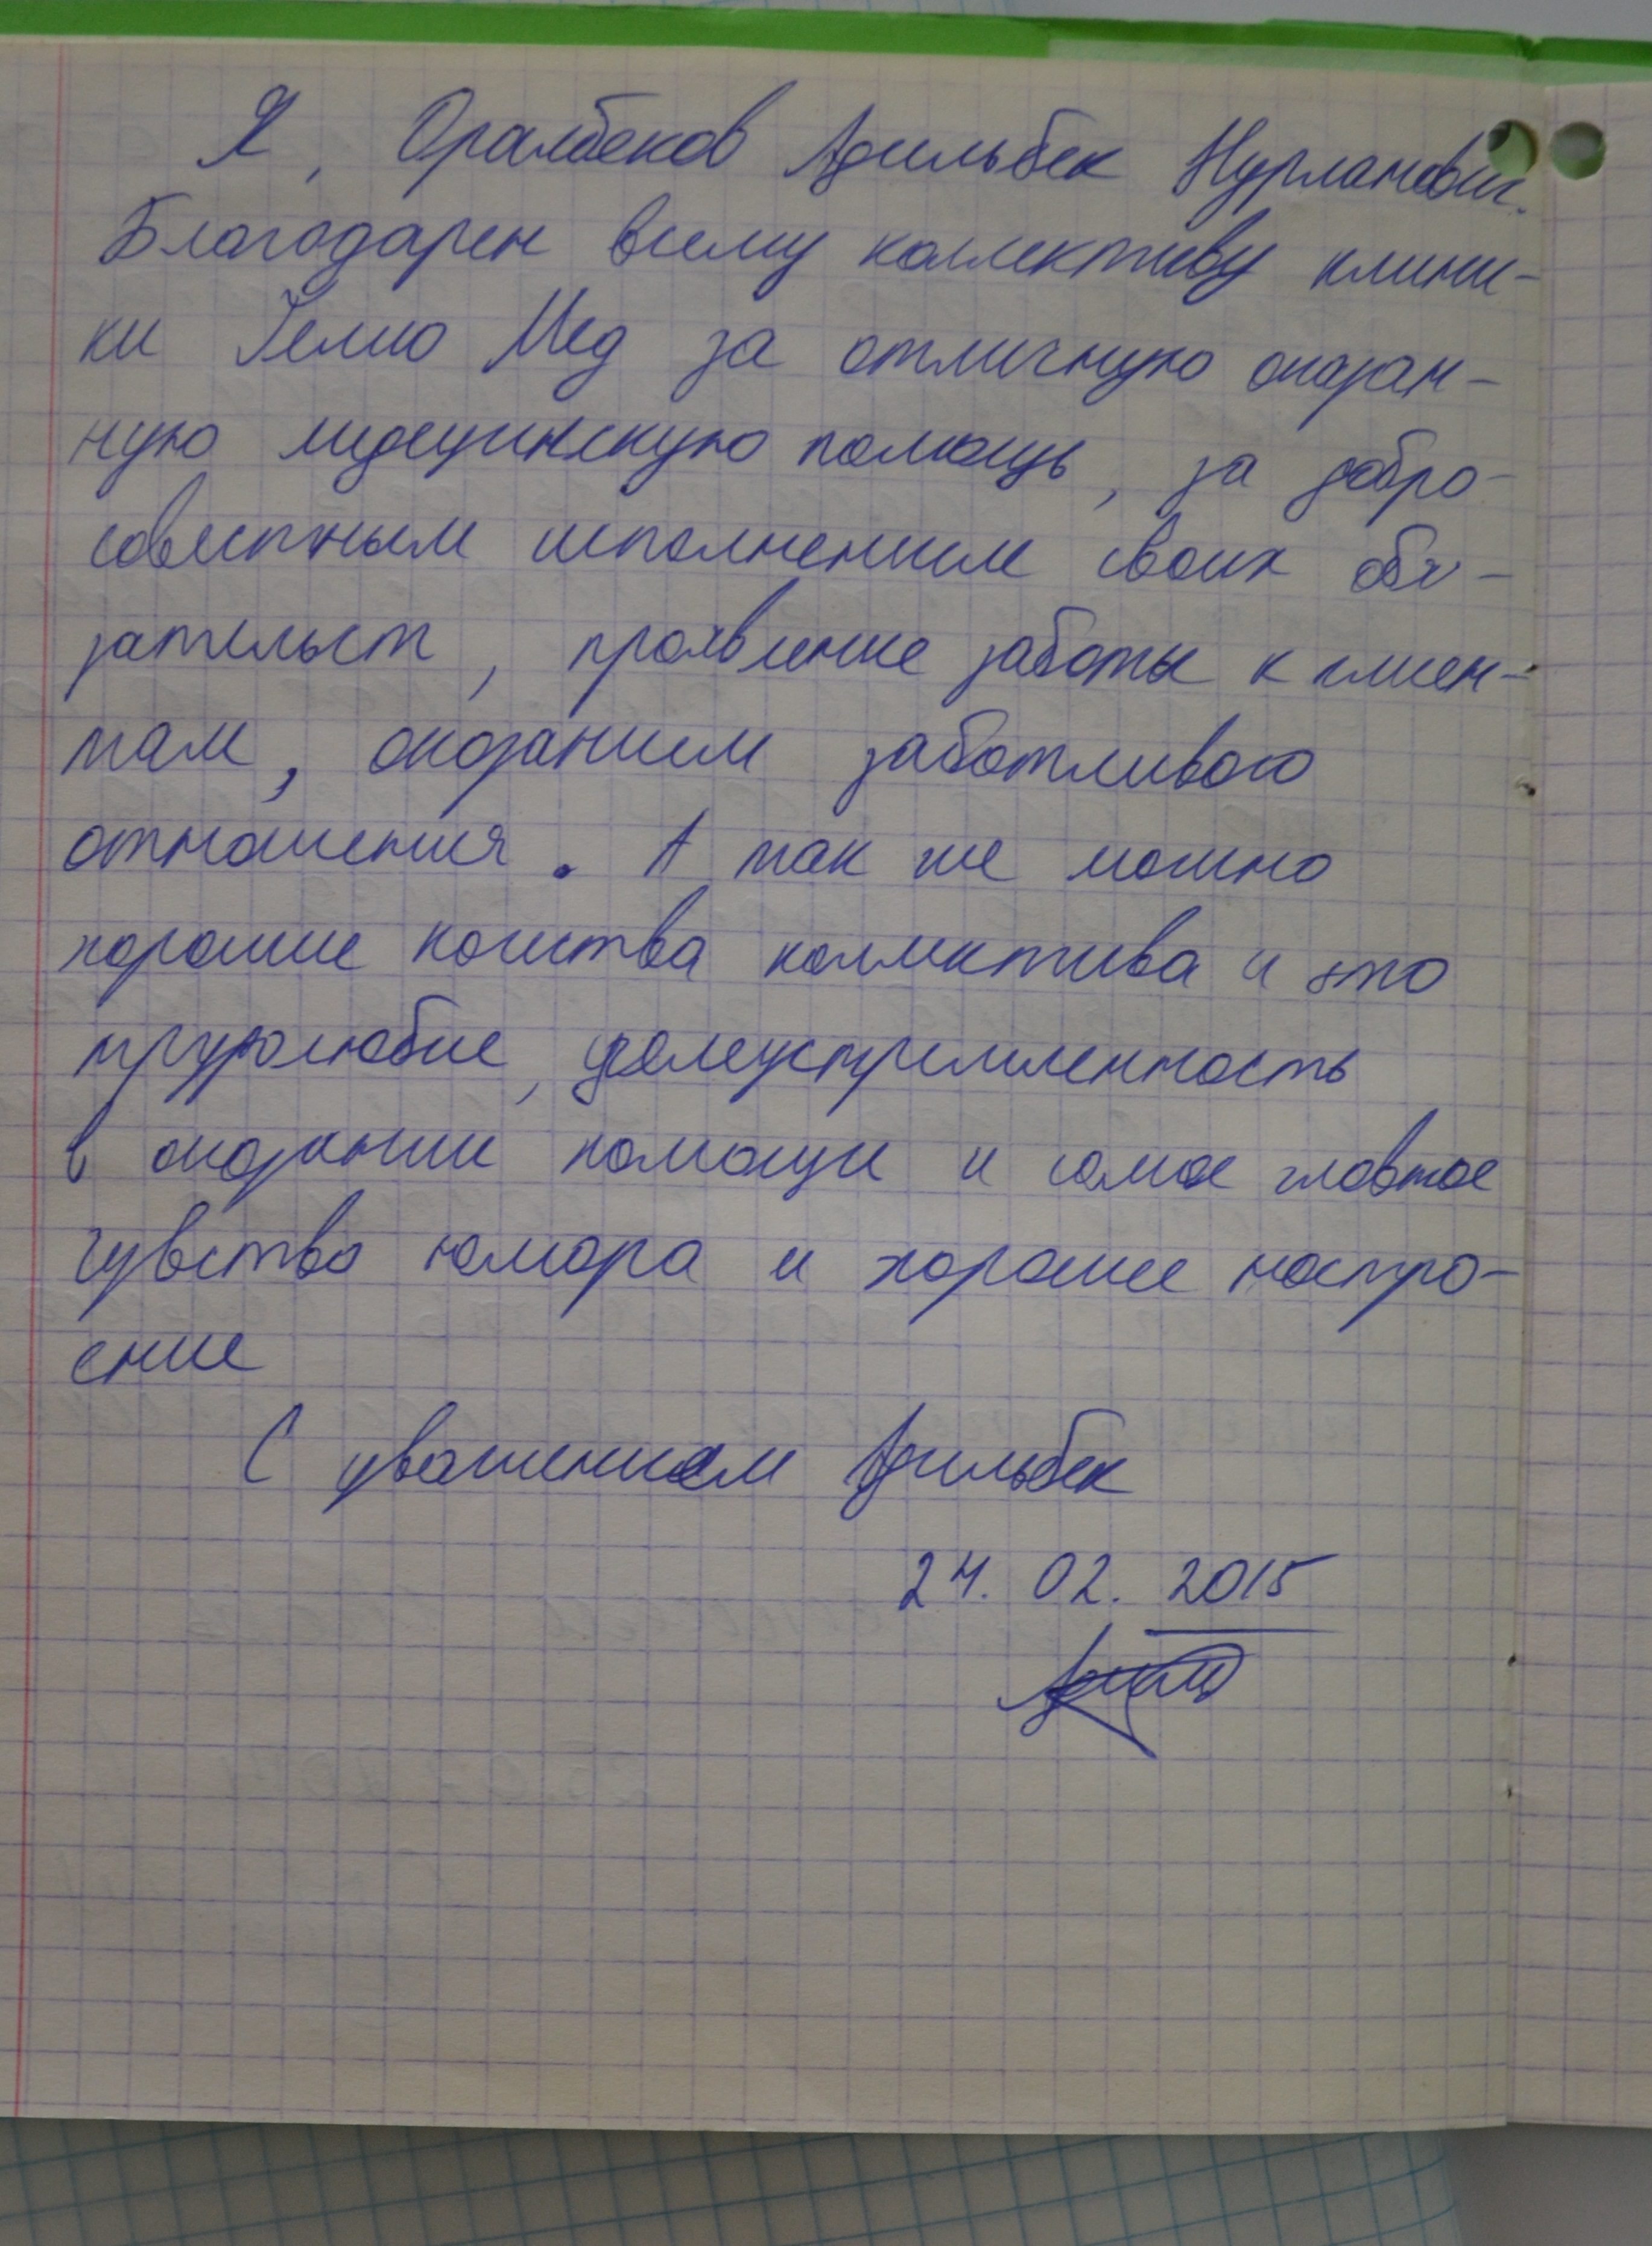 Я, Оралбеков Адильбек Нурланович.
Благодарен всему коллективу клини-
ки Гелио Мед за отличную оказан-
ную медецинскую помощь, за добро-
совестным исполнением своих обя-
зательст, проявление заботы к клиен-
там, оказанием заботливого
отношения. А так же можно
хорошие кочства коллектива и это
трудолюбие, целеустремленность
в оказании помощи и самое главное
чувство юмора и хорошее настро-
ение
С уважением Адильбек
24. 02. 2015